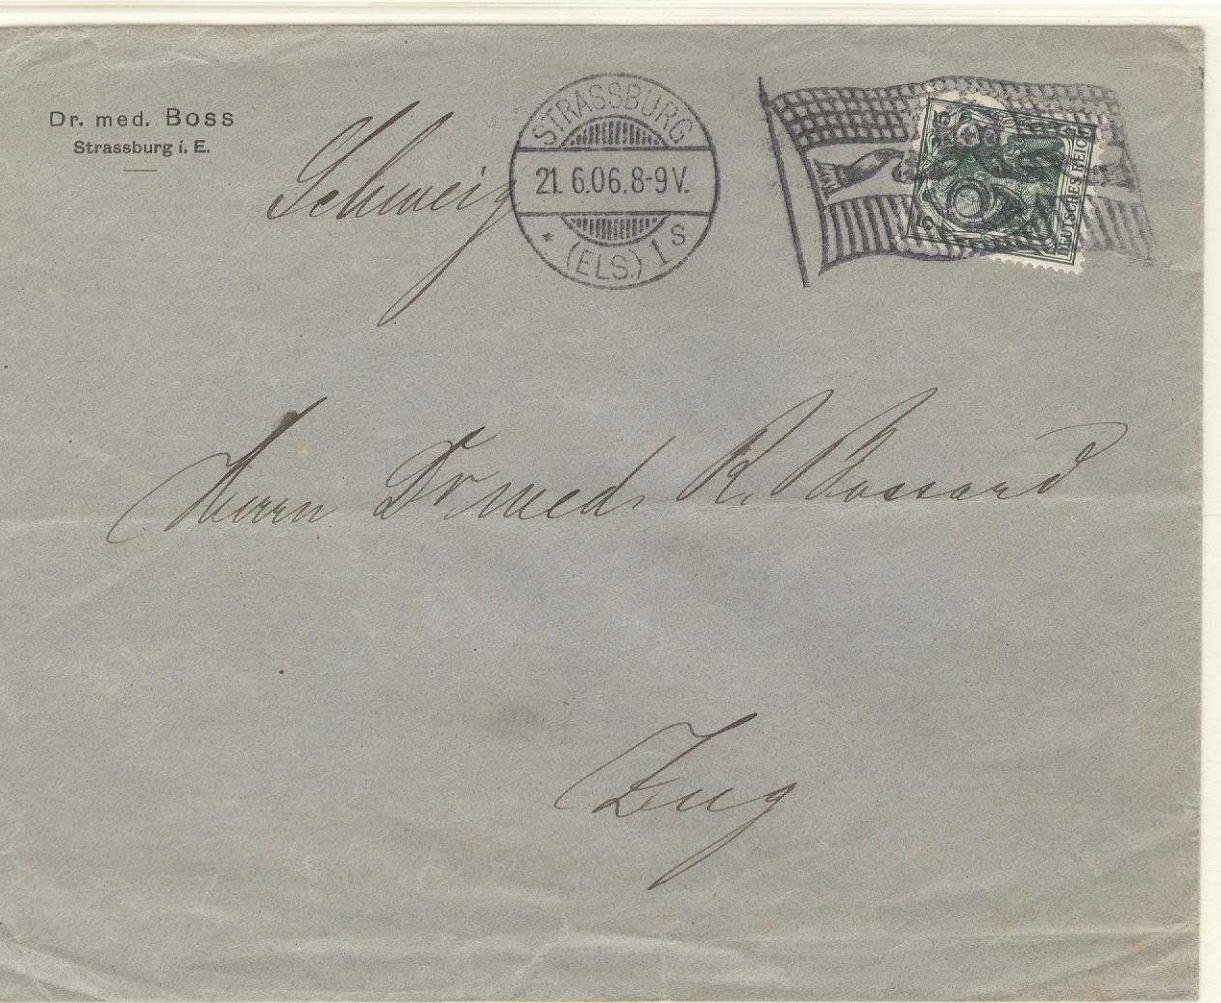 Dr. med. Boss
Strassburg i. E.
Schweiz
STRASSBURG
21. 6.06.8-9V.
* (ELS.) 1 s
5 5
DEUTSCHES REICH
Herrn Dr med. R. Bossard
Zug